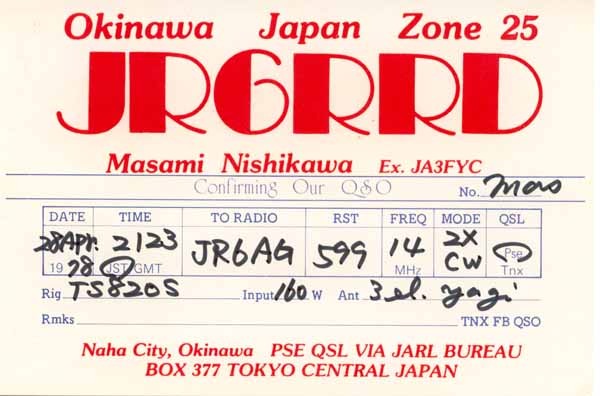 Okinawa Japan Zone 25
JR6RRD
Masami Nishikawa Ex. JA3FYC
Confirming Our QSO No. Mas
DATE TIME TO RADIO RST FREQ MODE QSL
28 Apr. 2123 JR6AG 599 14 2X CW Pse
1978 JST GMT MHz Tnx
Rig TS820S Input 160 W Ant 3 el. yagi
Rmks TNX FB QSO
Naha City, Okinawa PSE QSL VIA JARL BUREAU
BOX 377 TOKYO CENTRAL JAPAN